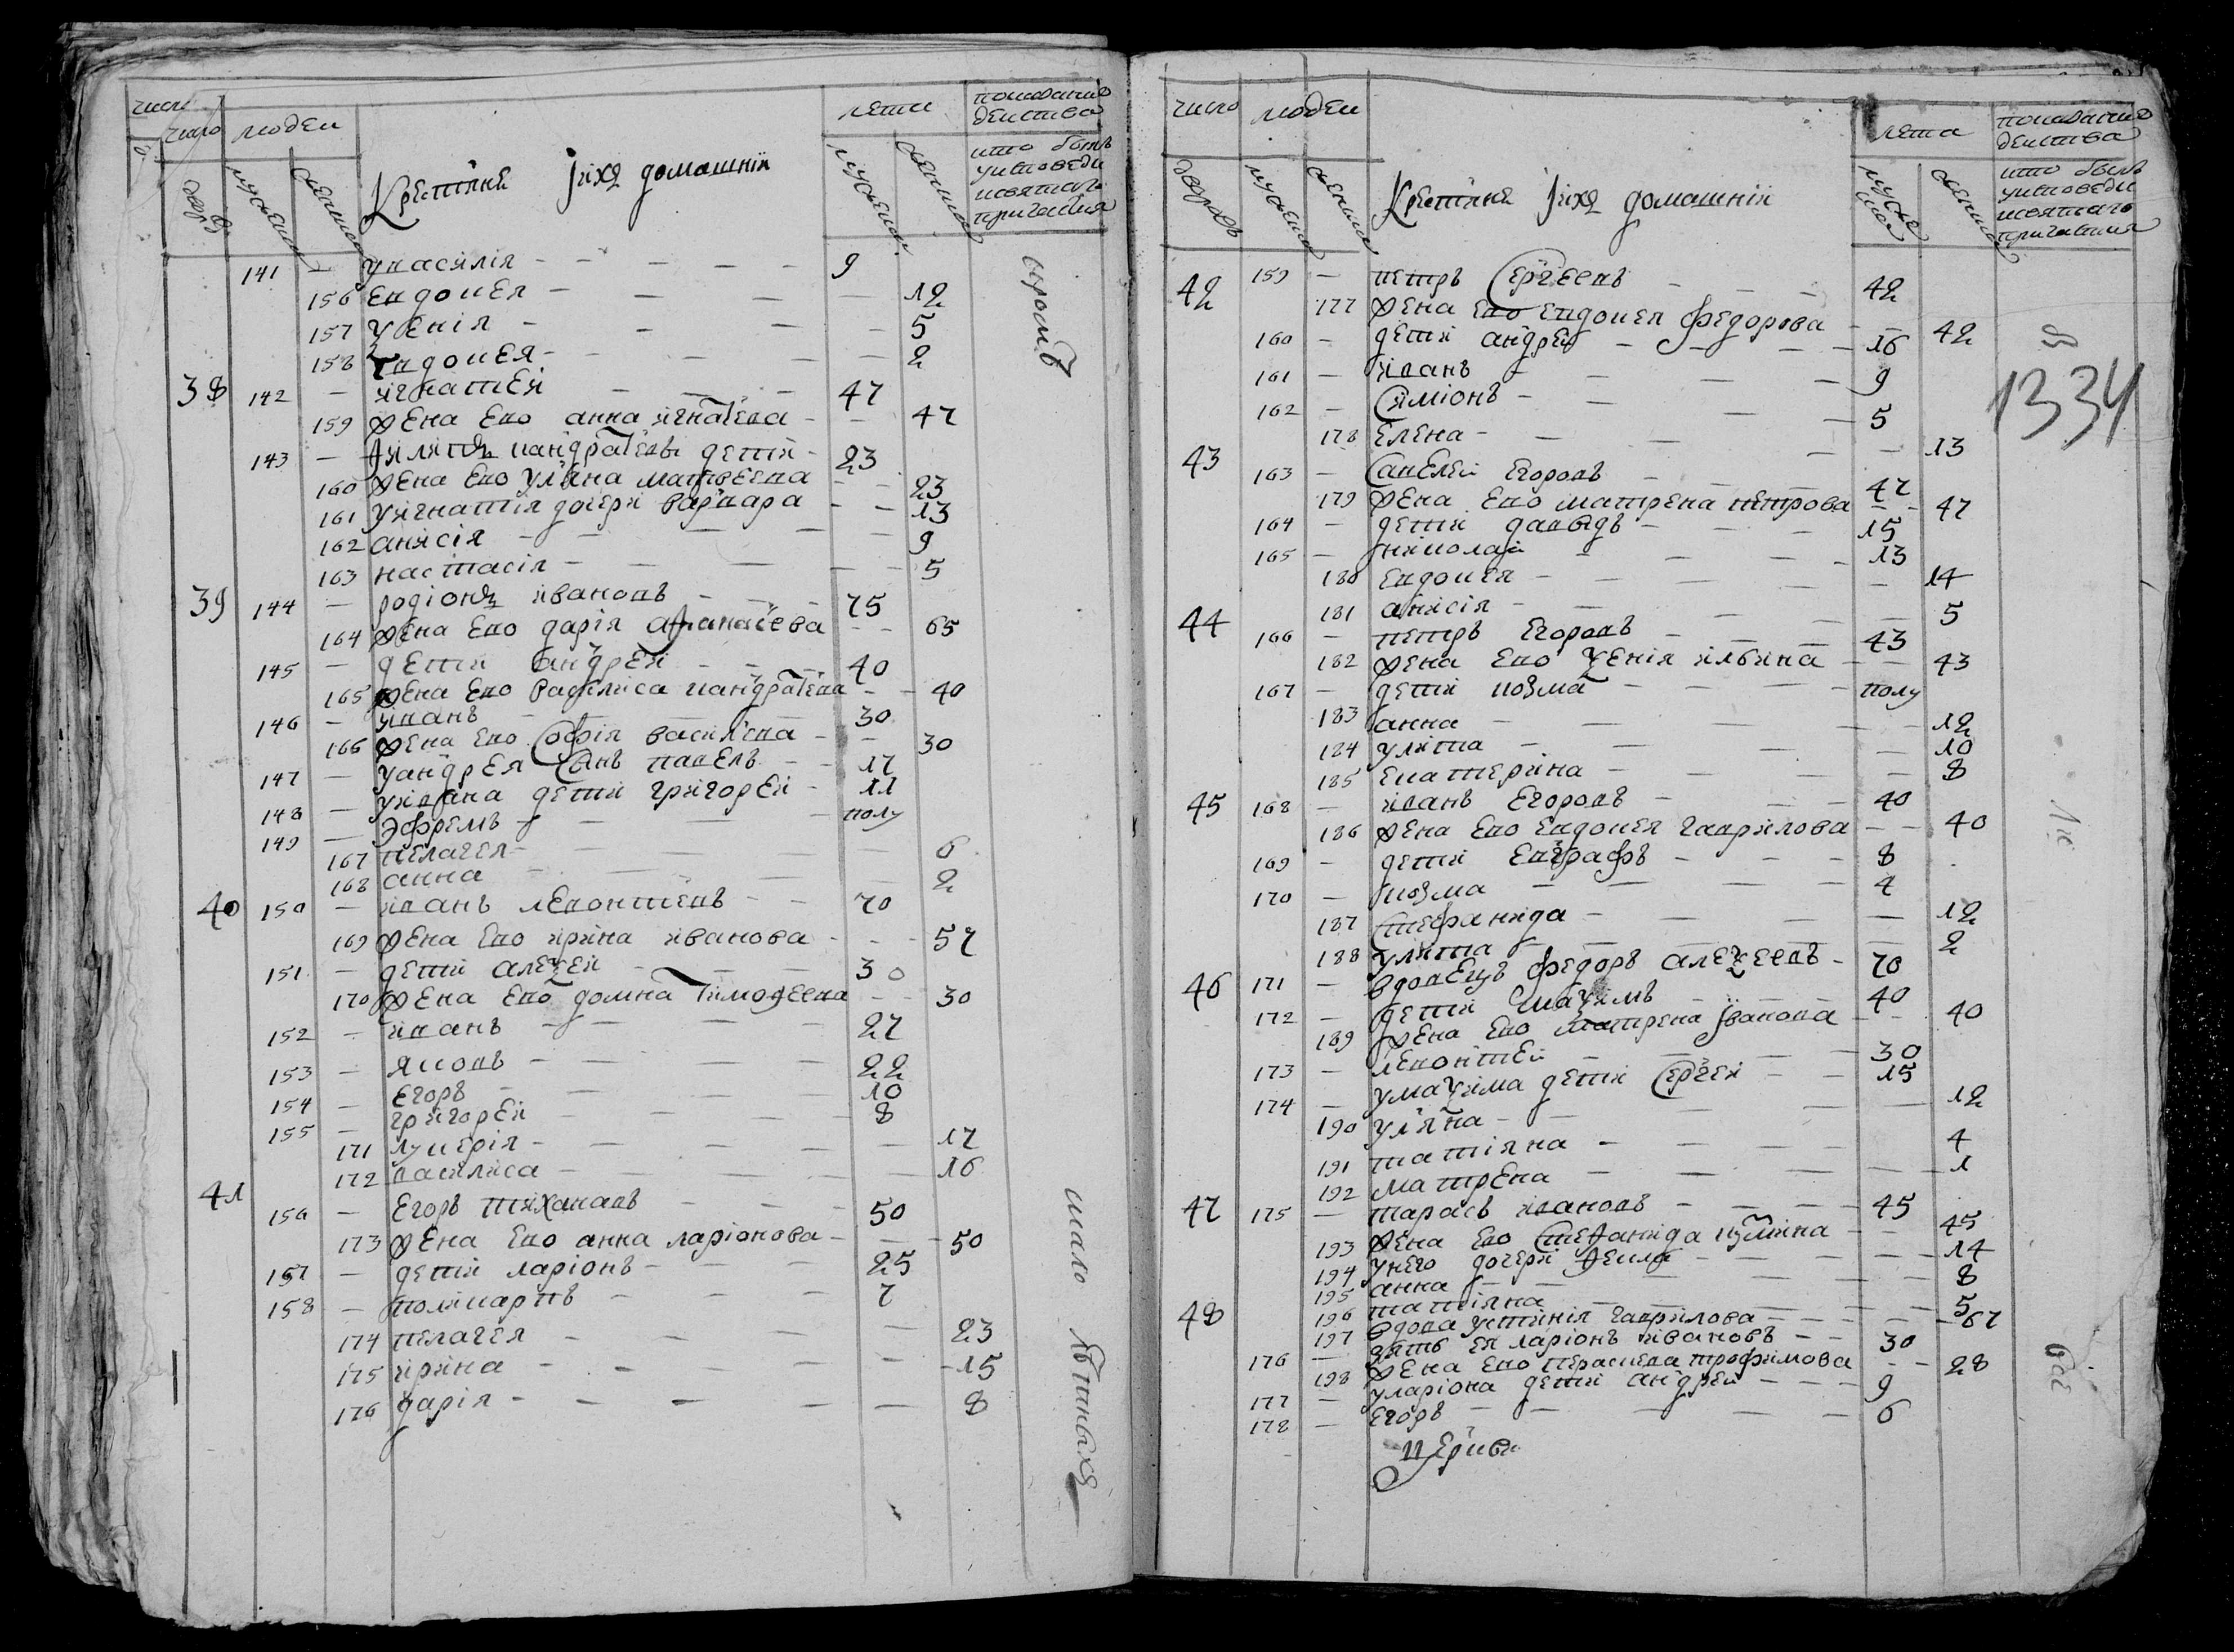 число
число людеи
лета
показание
деиства
дворов
мужеска
женска
Крестяне и ихъ домашнии
мужеска
женска
кто былъ
у исповеди
и святаго
причастия
141 — у василия — 9
156 евдокея — 12
157 ксения — 5
158 евдокея — 2
38 142 — игнатеи — 47
159 жена ево анна игнатева — 47
143 — филипъ кандратевъ дети — 23
160 жена ево улияна матвеева — 23
161 у игнатия дочери варвара — 13
162 анисия — 9
163 настасия — 5
39 144 — родионъ ивановъ — 75
164 жена ево дария афанасева — 65
145 — дети андреи — 40
165 жена ево василиса кандратева — 40
146 — иванъ — 30
166 жена ево софия василева — 30
147 — у андрея сынъ павелъ — 17
148 — у ивана дети григореи — 11
149 — эфремъ — полу
167 пелагея — 6
168 анна — 2
40 150 — иванъ левонтевъ — 70
169 жена ево ирина иванова — 57
151 — дети алексеи — 30
170 жена ево домна тимофеева — 30
152 — иванъ — 27
153 — яковъ — 22
154 — егоръ — 10
155 — григореи — 8
171 лукерия — 17
172 василиса — 16
41 156 — егоръ тиханавъ — 50
173 жена ево анна ларионова — 50
157 — дети ларионъ — 25
158 — поликарпъ — 7
174 пелагея — 23
175 ирина — 15
176 дария — 8
число людеи
лета
показание
деиства
дворовъ
мужеска
женска
Крестяне и ихъ домашнии
мужеска
женска
кто былъ
у исповеди
и святаго
причастия
1334
42 159 — петръ сергеевъ — 42
177 жена ево евдокея федорова — 42
160 — дети андреи — 16
161 — иванъ — 9
162 — симионъ — 5
178 елена — 13
43 163 — савелеи егоровъ — 47
179 жена ево матрена петрова — 47
164 — дети давыдъ — 15
165 — николаи — 13
180 евдокея — 14
181 анисия — 5
44 166 — петръ егоровъ — 43
182 жена ево ксения ильина — 43
167 — дети козма — полу
183 анна — 12
184 улита — 10
185 екатерина — 8
45 168 — иванъ егоровъ — 40
186 жена ево евдокея гаврилова — 40
169 — дети евграфъ — 8
170 — козма — 4
187 стефанида — 12
188 улита — 2
46 171 — вдовецъ федоръ алексеевъ — 70
172 — дети максимъ — 40
189 жена ево матрена иванова — 40
173 — левонтеи — 30
174 — у максима дети сергеи — 15
190 улияна — 12
191 татияна — 4
192 матрена — 1
47 175 — тарасъ ивановъ — 45
193 жена ево стефанида кузмина — 45
194 у него дочери фекла — 14
195 анна — 8
196 татияна — 5
48 197 вдова устиния гаврилова — 67
176 — зять ея ларионъ ивановъ — 30
198 жена ево пераскева трофимова — 28
177 — у лариона дети андреи — 9
178 — егоръ — 6
церкви